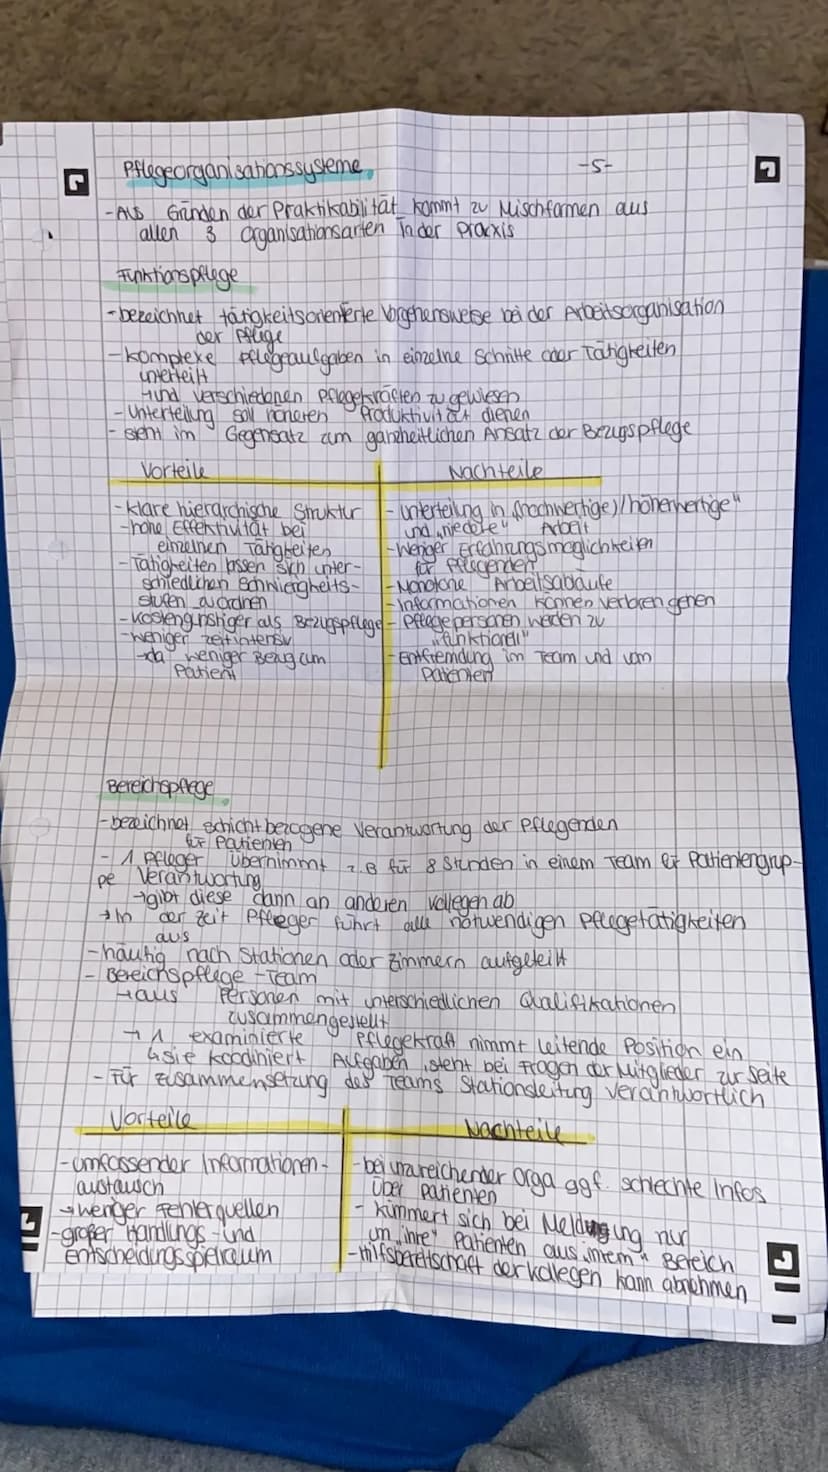 Pflegeorganisationssysteme
-5-
-Aus Gründen der Praktikabilität kommt zu Mischformen aus
allen 3 Organisationsarten in der Praxis
Funktionspflege
-bezeichnet tätigkeitsorientierte Vorgehensweise bei der Arbeitsorganisation
der Pflege
-komplexe Pflegeaufgaben in einzelne Schritte oder Tätigkeiten
unterteilt
→und verschiedenen Pflegekräften zugewiesen
-Unterteilung soll höheren Produktivität dienen
- steht im Gegensatz zum ganzheitlichen Ansatz der Bezugspflege
Vorteile
-klare hierarchische Struktur
-hohe Effektivität bei
einzelnen Tätigkeiten
-Tätigkeiten lassen sich unter-
schiedlichen Schwierigkeits-
stufen zuordnen
-kostengünstiger als Bezugspflege
-weniger zeitintensiv
→da weniger Bezug zum
Patient
Nachteile
- Unterteilung in (hochwertige)/höherwertige"
und „niedere" Arbeit
-Weniger Erfahrungsmöglichkeiten
für Pflegenden
-Monotone Arbeitsabläufe
-Informationen können verloren gehen
- Pflegepersonen werden zu
„funktionell"
-Entfremdung im Team und vom
Patienten
Bereichspflege
-bezeichnet schichtbezogene Verantwortung der Pflegenden
für Patienten
- 1 Pfleger übernimmt z.B für 8 Stunden in einem Team für Patientengrup-
pe Verantwortung
→gibt diese dann an anderen Kollegen ab
→In der Zeit Pfleger führt alle notwendigen Pflegetätigkeiten
aus
-häufig nach Stationen oder Zimmern aufgeteilt
- Bereichspflege-Team
→aus Personen mit unterschiedlichen Qualifikationen
zusammengestellt
→ 1 examinierte Pflegekraft nimmt leitende Position ein
↳sie koodiniert Aufgaben, steht bei Fragen der Mitglieder zur Seite
- Für Zusammensetzung des Teams Stationsleitung verantwortlich
Vorteile
-umfassender Informationen-
austausch
→weniger Fehlerquellen
-großer Handlungs-und
entscheidungsspielraum
Nachteile
-bei unzureichender Orga ggf. schlechte Infos
über Patienten
- kümmert sich bei Meldung nur
um „ihre" Patienten aus „ihrem" Bereich
-Hilfsbereitschaft der Kollegen kann abnehmen